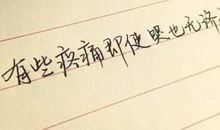 有些疼痛即使哭也无济